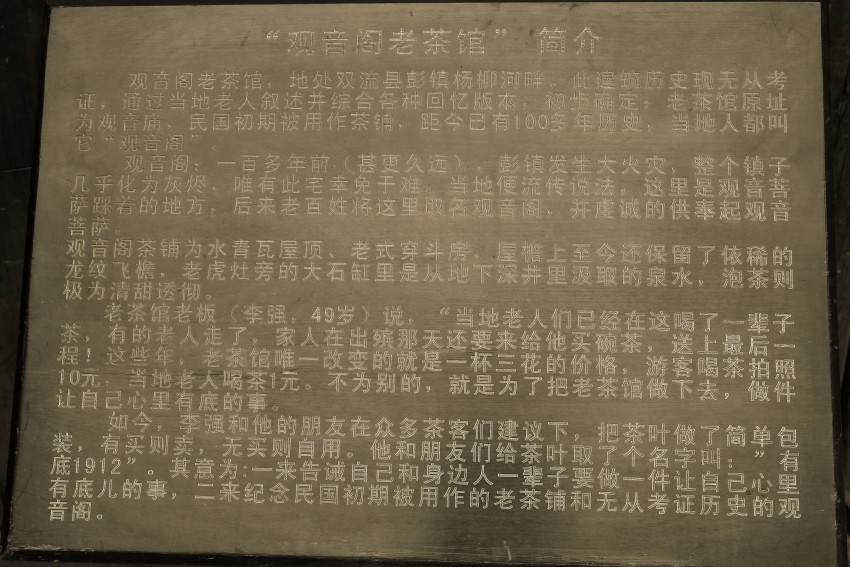 “观音阁老茶馆” 简介
观音阁老茶馆，地处双流县彭镇杨柳河畔，此建筑历史现无从考
证，通过当地老人叙述并综合各种回忆版本，初步确定：老茶馆原址
为观音庙、民国初期被用作茶铺，距今已有100多年历史，当地人都叫
它“观音阁”
观音阁：一百多年前（甚更久远），彭镇发生大火灾，整个镇子
几乎化为灰烬，唯有此宅幸免于难。当地便流传说法，这里是观音菩
萨踩着的地方，后来老百姓将这里取名观音阁，并虔诚的供奉起观音
菩萨。
观音阁茶铺为水青瓦屋顶、老式穿斗房，屋檐上至今还保留了依稀的
龙纹飞檐，老虎灶旁的大石缸里是从地下深井里汲取的泉水，泡茶则
极为清甜透彻。
老茶馆老板（李强，49岁）说，“当地老人们已经在这喝了一辈子
茶，有的老人走了，家人在出殡那天还要来给他买碗茶，送上最后一
程！这些年，老茶馆唯一改变的就是一杯三花的价格，游客喝茶拍照
10元，当地老人喝茶1元。不为别的，就是为了把老茶馆做下去，做件
让自己心里有底的事。
如今，李强和他的朋友在众多茶客们建议下，把茶叶做了简单包
装，有买则卖，无买则自用。他和朋友们给茶叶取了个名字叫：”有
底1912”。其意为:一来告诫自己和身边人一辈子要做一件让自己心里
有底儿的事，二来纪念民国初期被用作的老茶铺和无从考证历史的观
音阁。